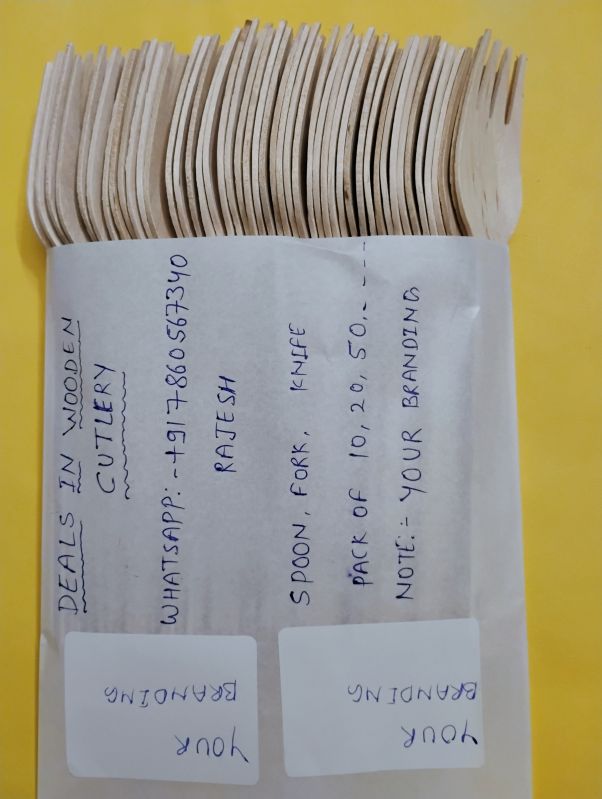 DEALS IN WOODEN
CUTLERY
WHATSAPP:-+917860567340
RAJESH
SPOON, FORK, KNIFE
PACK OF 10, 20, 50,----
NOTE:- YOUR BRANDING
YOUR
BRANDING
YOUR
BRANDING